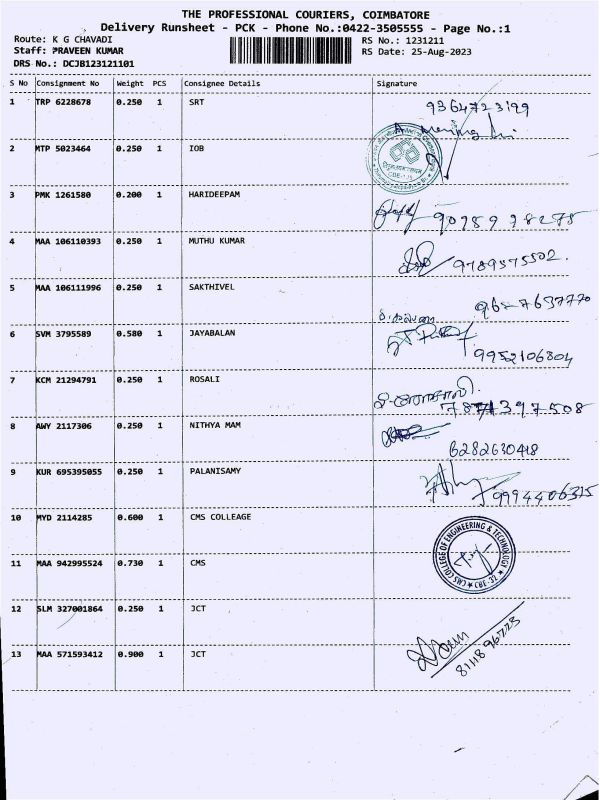 THE PROFESSIONAL COURIERS, COIMBATORE
Delivery Runsheet - PCK - Phone No.:0422-3505555 - Page No.:1
Route: K G CHAVADI RS No.: 1231211
Staff: PRAVEEN KUMAR RS Date: 25-Aug-2023
DRS No.: DCJB123121101
S No Consignment No Weight PCS Consignee Details Signature
1 TRP 6228678 0.250 1 SRT 9364723199
2 MTP 5023464 0.250 1 IOB
3 PMK 1261580 0.200 1 HARIDEEPAM
4 MAA 106110393 0.250 1 MUTHU KUMAR 9789575502.
5 MAA 106111996 0.250 1 SAKTHIVEL
6 SVM 3795589 0.580 1 JAYABALAN 9952106804
7 KCM 21294791 0.250 1 ROSALI
8 AWY 2117306 0.250 1 NITHYA MAM 6282630418
9 KUR 695395055 0.250 1 PALANISAMY 9994406315
10 MYD 2114285 0.600 1 CMS COLLEAGE
CMS COLLEGE OF ENGINEERING & TECHNOLOGY
★ CBE-32 ★
11 MAA 942995524 0.730 1 CMS
12 SLM 327001864 0.250 1 JCT
13 MAA 571593412 0.900 1 JCT